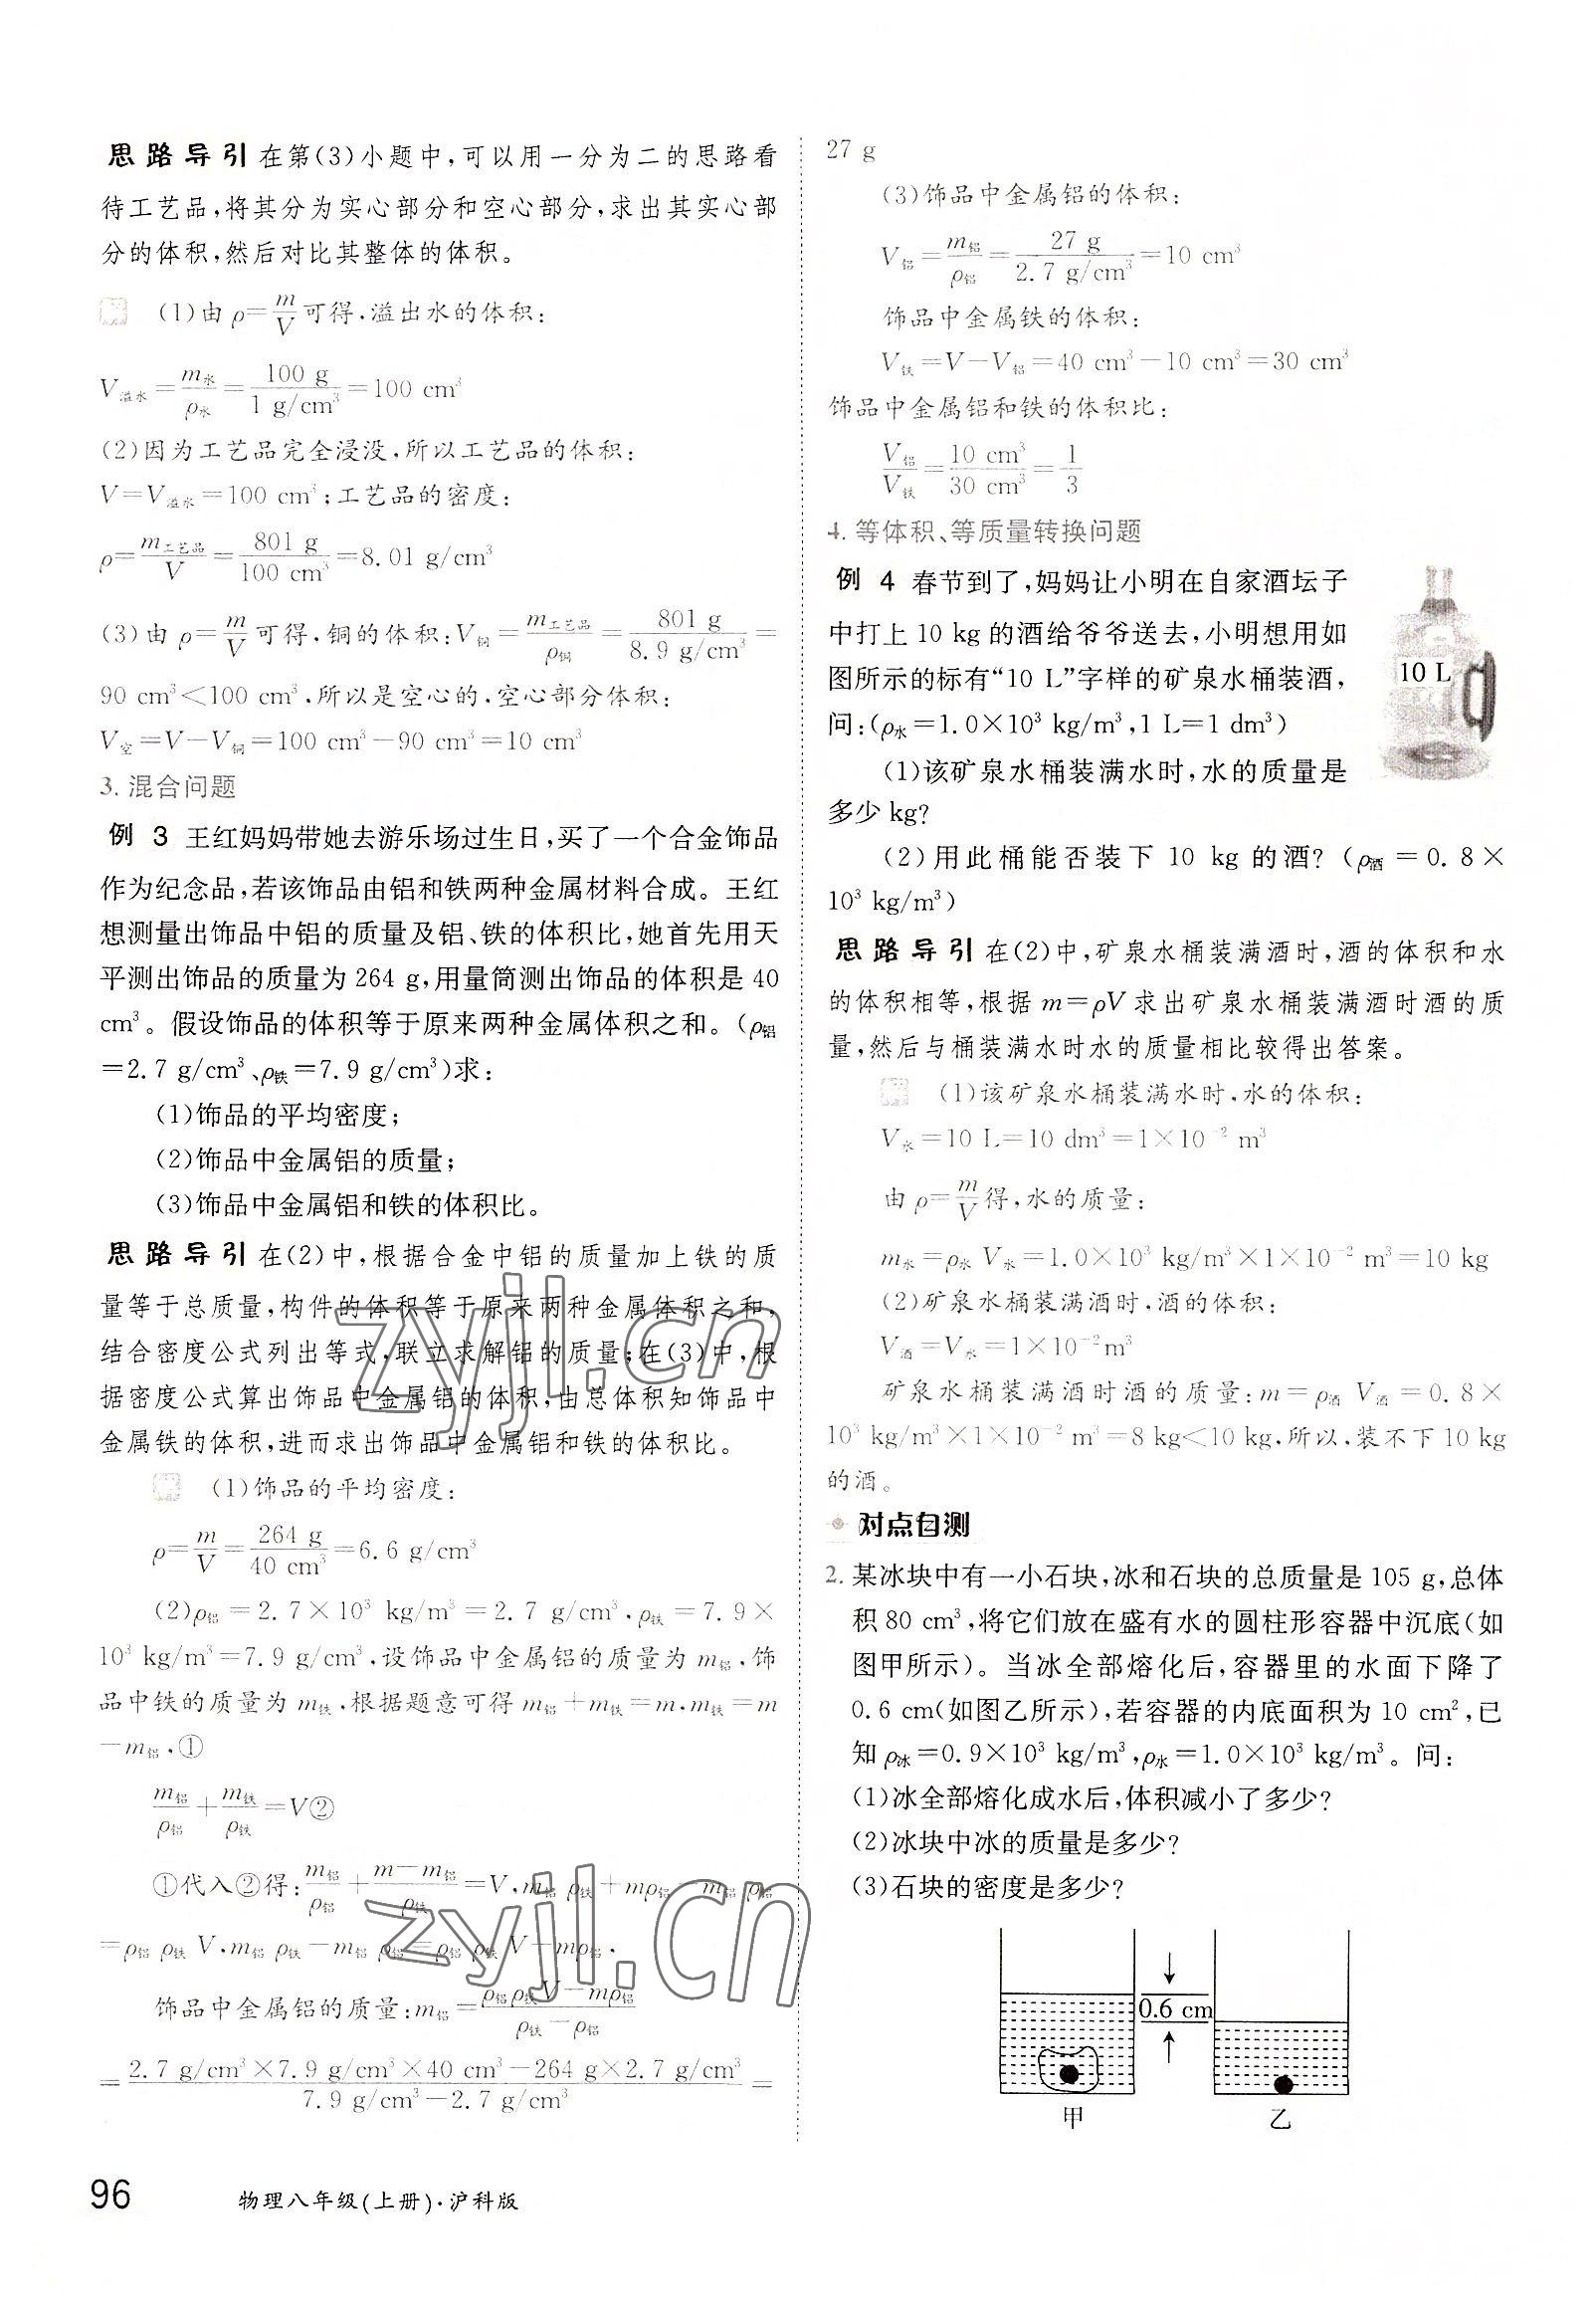 思路导引 在第(3)小题中,可以用一分为二的思路看
待工艺品,将其分为实心部分和空心部分,求出其实心部
分的体积,然后对比其整体的体积。
(1)由 ρ=m/V可得,溢出水的体积:
V溢水=m水/ρ水=100 g/1 g/cm³=100 cm³
(2)因为工艺品完全浸没,所以工艺品的体积:
V=V溢水=100 cm³;工艺品的密度:
ρ=m工艺品/V=801 g/100 cm³=8.01 g/cm³
(3)由 ρ=m/V可得,铜的体积:V铜=m工艺品/ρ铜=801 g/8.9 g/cm³=
90 cm³<100 cm³,所以是空心的,空心部分体积:
V空=V-V铜=100 cm³-90 cm³=10 cm³
3. 混合问题
例 3 王红妈妈带她去游乐场过生日,买了一个合金饰品
作为纪念品,若该饰品由铝和铁两种金属材料合成。王红
想测量出饰品中铝的质量及铝、铁的体积比,她首先用天
平测出饰品的质量为 264 g,用量筒测出饰品的体积是 40
cm³。假设饰品的体积等于原来两种金属体积之和。(ρ铝
=2.7 g/cm³、ρ铁=7.9 g/cm³)求:
(1)饰品的平均密度;
(2)饰品中金属铝的质量;
(3)饰品中金属铝和铁的体积比。
思路导引 在(2)中,根据合金中铝的质量加上铁的质
量等于总质量,构件的体积等于原来两种金属体积之和,
结合密度公式列出等式,联立求解铝的质量;在(3)中,根
据密度公式算出饰品中金属铝的体积,由总体积知饰品中
金属铁的体积,进而求出饰品中金属铝和铁的体积比。
(1)饰品的平均密度:
ρ=m/V=264 g/40 cm³=6.6 g/cm³
(2)ρ铝=2.7×10³ kg/m³=2.7 g/cm³,ρ铁=7.9×
10³ kg/m³=7.9 g/cm³,设饰品中金属铝的质量为 m铝,饰
品中铁的质量为 m铁,根据题意可得 m铝+m铁=m,m铁=m
-m铝,①
m铝/ρ铝+m铁/ρ铁=V②
①代入②得:m铝/ρ铝+m-m铝/ρ铁=V,m铝ρ铁+mρ铝-m铝ρ铝
=ρ铝ρ铁V,m铝ρ铁-m铝ρ铝=ρ铝ρ铁V-mρ铝,
饰品中金属铝的质量:m铝=ρ铝ρ铁V-mρ铝/ρ铁-ρ铝
=2.7 g/cm³×7.9 g/cm³×40 cm³-264 g×2.7 g/cm³/7.9 g/cm³-2.7 g/cm³=
27 g
(3)饰品中金属铝的体积:
V铝=m铝/ρ铝=27 g/2.7 g/cm³=10 cm³
饰品中金属铁的体积:
V铁=V-V铝=40 cm³-10 cm³=30 cm³
饰品中金属铝和铁的体积比:
V铝/V铁=10 cm³/30 cm³=1/3
4. 等体积、等质量转换问题
例 4 春节到了,妈妈让小明在自家酒坛子
中打上 10 kg 的酒给爷爷送去,小明想用如
图所示的标有“10 L”字样的矿泉水桶装酒,
问:(ρ水=1.0×10³ kg/m³,1 L=1 dm³)
10 L
(1)该矿泉水桶装满水时,水的质量是
多少 kg?
(2)用此桶能否装下 10 kg 的酒?(ρ酒=0.8×
10³ kg/m³)
思路导引 在(2)中,矿泉水桶装满酒时,酒的体积和水
的体积相等,根据 m=ρV 求出矿泉水桶装满酒时酒的质
量,然后与桶装满水时水的质量相比较得出答案。
(1)该矿泉水桶装满水时,水的体积:
V水=10 L=10 dm³=1×10⁻² m³
由 ρ=m/V得,水的质量:
m水=ρ水 V水=1.0×10³ kg/m³×1×10⁻² m³=10 kg
(2)矿泉水桶装满酒时,酒的体积:
V酒=V水=1×10⁻²m³
矿泉水桶装满酒时酒的质量:m=ρ酒 V酒=0.8×
10³ kg/m³×1×10⁻² m³=8 kg<10 kg,所以,装不下 10 kg
的酒。
对点自测
2. 某冰块中有一小石块,冰和石块的总质量是 105 g,总体
积 80 cm³,将它们放在盛有水的圆柱形容器中沉底(如
图甲所示)。当冰全部熔化后,容器里的水面下降了
0.6 cm(如图乙所示),若容器的内底面积为 10 cm²,已
知 ρ冰=0.9×10³ kg/m³,ρ水=1.0×10³ kg/m³。问:
(1)冰全部熔化成水后,体积减小了多少?
(2)冰块中冰的质量是多少?
(3)石块的密度是多少?
0.6 cm
甲 乙
96 物理八年级(上册)·沪科版
zyjl.cn
zyjl.cn